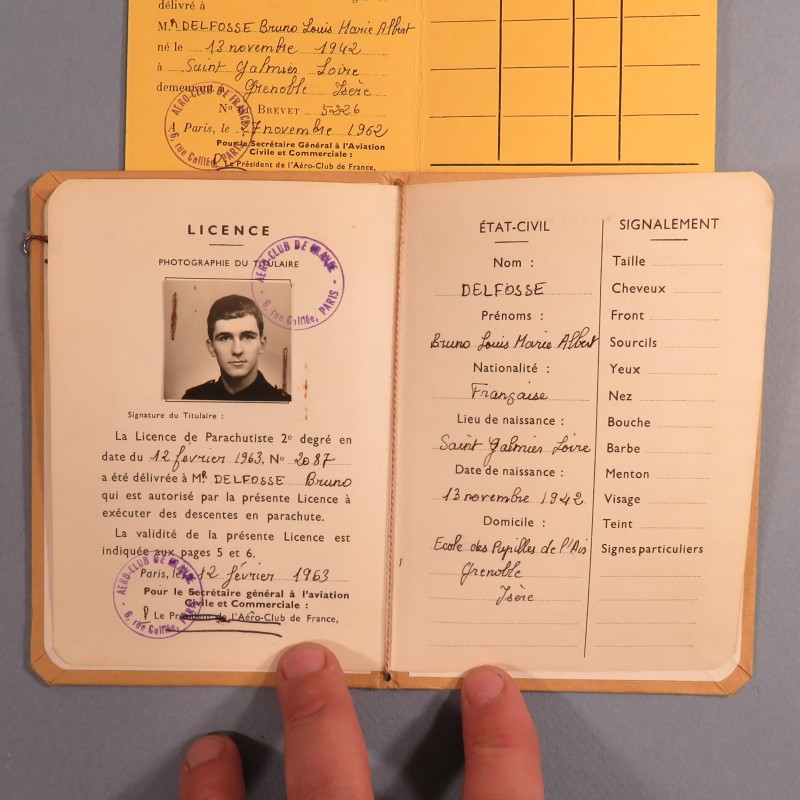 délivré à
Mr DELFOSSE Bruno Louis Marie Albert
né le 13 novembre 1942
à Saint Galmier Loire
demeurant à Grenoble Isère
No du BREVET 5326
A Paris, le 7 novembre 1962
Pour le Secrétaire Général à l'Aviation
Civile et Commerciale :
P Le Président de l'Aéro-Club de France,
AÉRO-CLUB DE FRANCE
6, rue Galilée, PARIS
LICENCE
PHOTOGRAPHIE DU TITULAIRE
AÉRO-CLUB DE FRANCE
6, rue Galilée, PARIS
Signature du Titulaire :
La Licence de Parachutiste 2e degré en
date du 12 février 1963, No 2087
a été délivrée à Mr DELFOSSE Bruno
qui est autorisé par la présente Licence à
exécuter des descentes en parachute.
La validité de la présente Licence est
indiquée aux pages 5 et 6.
Paris, le 12 février 1963
Pour le Secrétaire général à l'aviation
Civile et Commerciale :
P Le Président de l'Aéro-Club de France,
AÉRO-CLUB DE FRANCE
6, rue Galilée, PARIS
ÉTAT-CIVIL
Nom :
DELFOSSE
Prénoms :
Bruno Louis Marie Albert
Nationalité :
Française
Lieu de naissance :
Saint Galmier Loire
Date de naissance :
13 novembre 1942
Domicile :
Ecole des Pupilles de l'Air
Grenoble
Isère
SIGNALEMENT
Taille
Cheveux
Front
Sourcils
Yeux
Nez
Bouche
Barbe
Menton
Visage
Teint
Signes particuliers